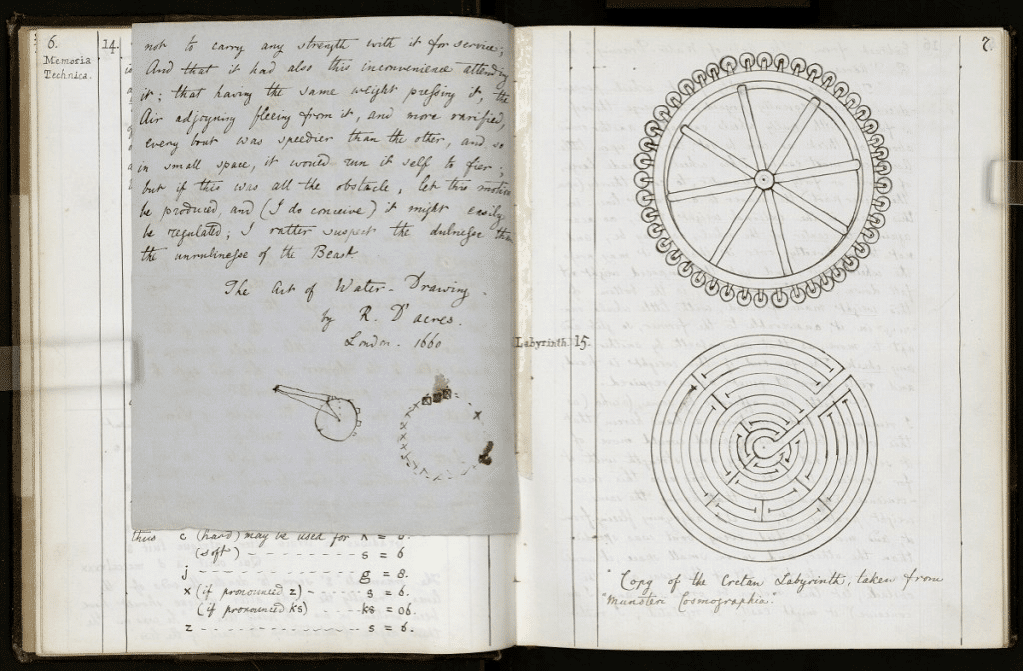 6.
Memoria
Technica.
14.
not to carry any strength with it for service;
And that it had also this inconvenience attending
it; that having the same weight pressing it, the
Air adjoyning fleeing from it, and more rarified,
every bout was speedier than the other, and so
in small space, it would run it self to fier;
but if this was all the obstacle, let this motion
be produced, and (I do conceive) it might easily
be regulated; I rather suspect the dulnesse than
the unrulinesse of the Beast
The Art of Water-Drawing.
by R. D'acres.
London. 1660
thus c (hard) may be used for K = 6.
(soft) - - - - - - - - - s = 6
j - - - - - - - - - - - - g = 8.
x (if pronounced z) - - - - s = 6.
(if pronounced ks) - - - - ks = 06.
z - - - - - - - - - - - - s = 6.
7.
Labyrinth. 15.
"Copy of the Cretan Labyrinth, taken from
"Munsteri Cosmographia."